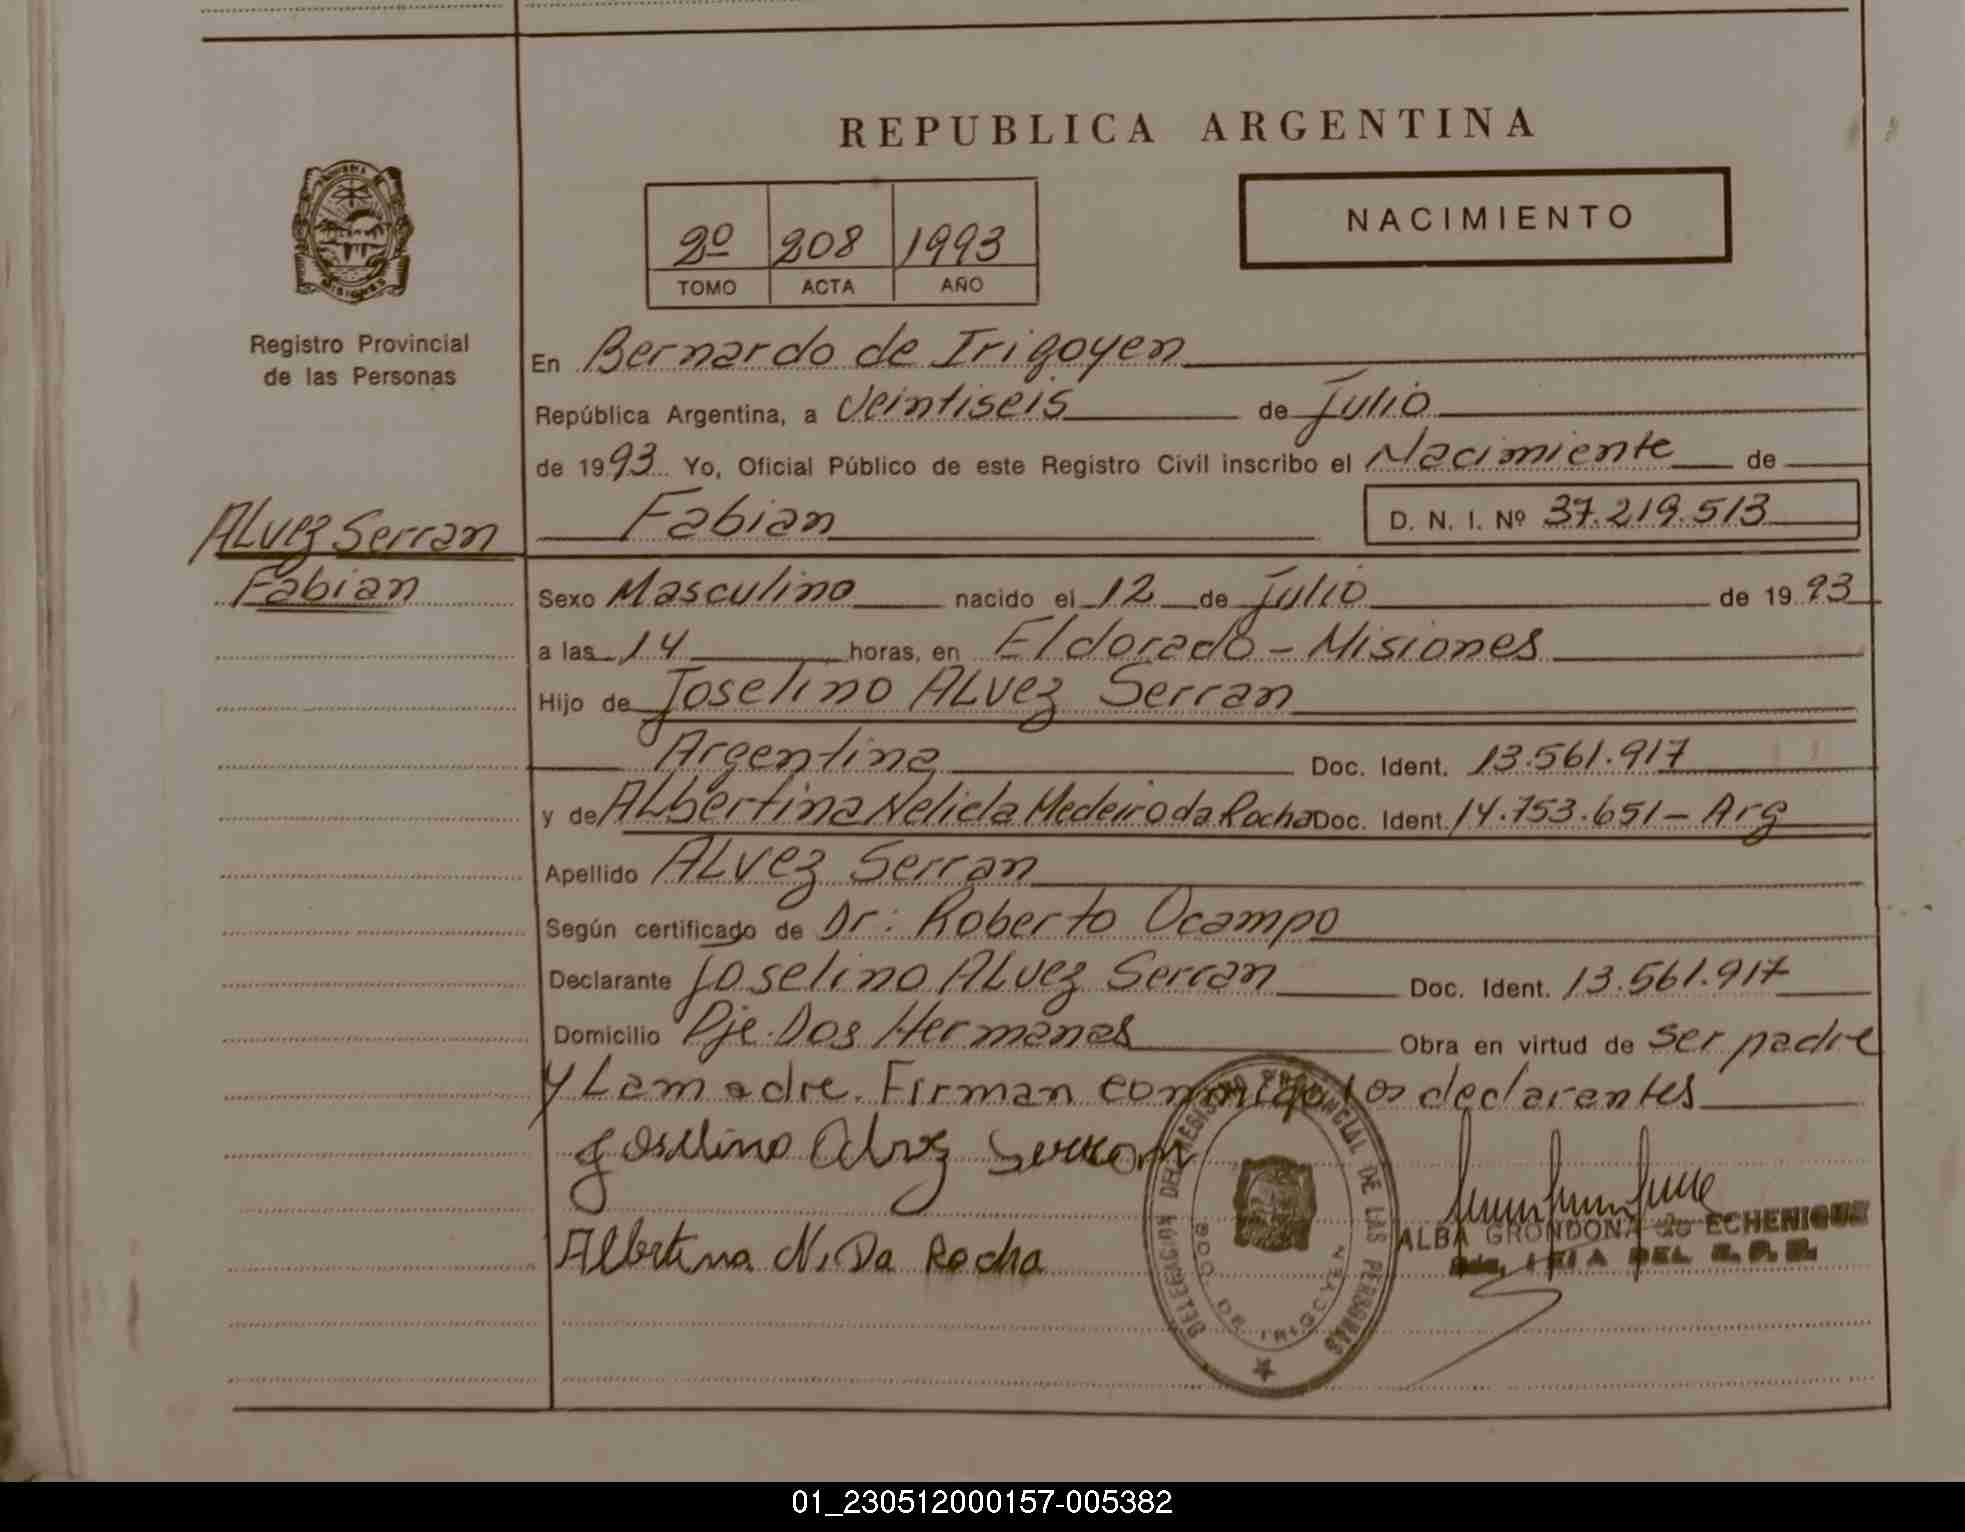 REPUBLICA ARGENTINA
NACIMIENTO
2º 208 1993
TOMO ACTA AÑO
MISIONES
Registro Provincial
de las Personas
En Bernardo de Irigoyen
República Argentina, a Veintiseis de Julio
de 1993 Yo, Oficial Público de este Registro Civil inscribo el Nacimiento de
Fabian D. N. I. Nº 37.219.513
ALvez Serran
Fabian
Sexo Masculino nacido el 12 de Julio de 1993
a las 14 horas, en Eldorado - Misiones
Hijo de Joselino ALvez Serran
Argentina Doc. Ident. 13.561.917
y de ALbertina Nelida Medeiro da Rocha Doc. Ident. 14.753.651 - Arg
Apellido ALvez Serran
Según certificado de Dr: Roberto Ocampo
Declarante Joselino ALvez Serran Doc. Ident. 13.561.917
Domicilio Pje. Dos Hermanas Obra en virtud de ser padre
y La madre. Firman conmigo los declarantes
Joselino Alvez Serran
Albertina N. Da Rocha
DELEGACION DEL REGISTRO PROVINCIAL DE LAS PERSONAS
BDO. DE IRIGOYEN
ALBA GRONDONA de ECHENIQUE
DEL R. P. P.
01_230512000157-005382